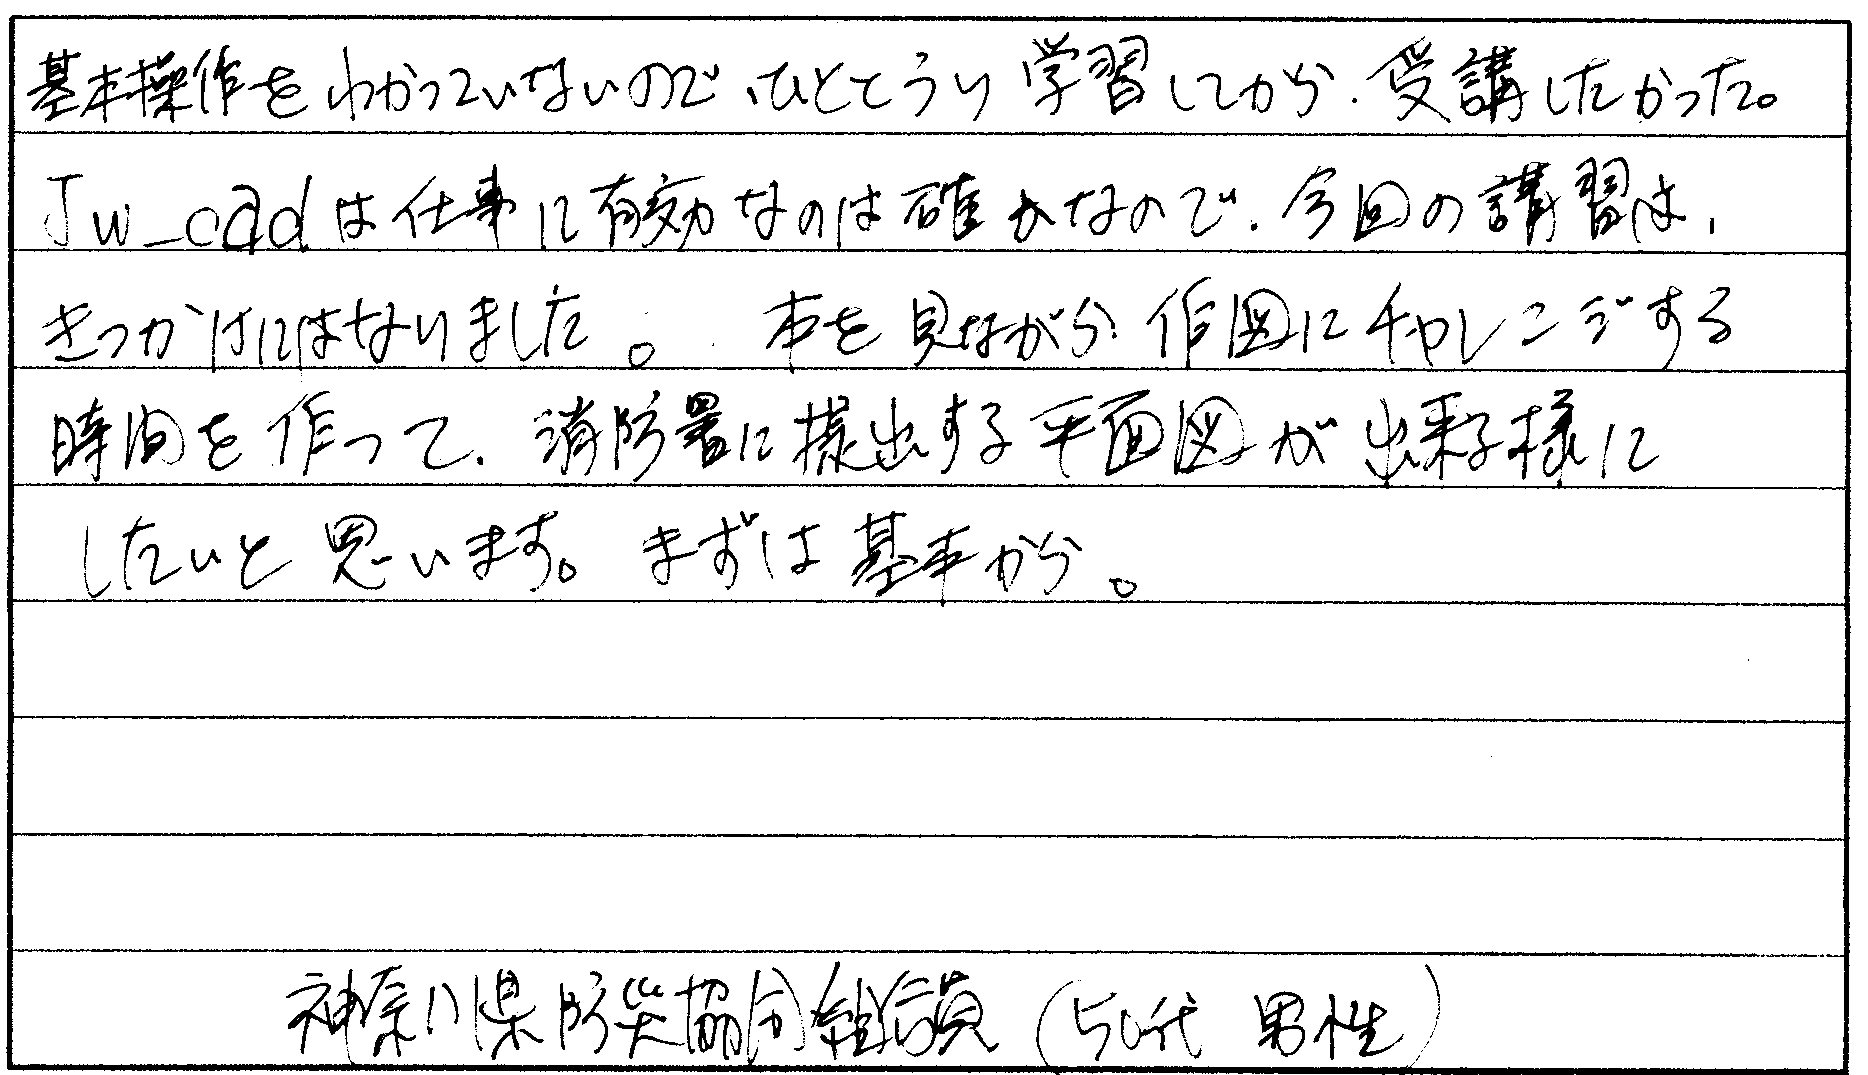 基本操作をわかっていないので、ひととうり学習してから、受講したかった。
Jw_cadは仕事に有効なのは確かなので、今回の講習は、
きっかけにはなりました。本を見ながら作図にチャレンジする
時間を作って、消防署に提出する平面図が出来る様に
したいと思います。まずは基本から。
神奈川県防災協同組合員(50代 男性)